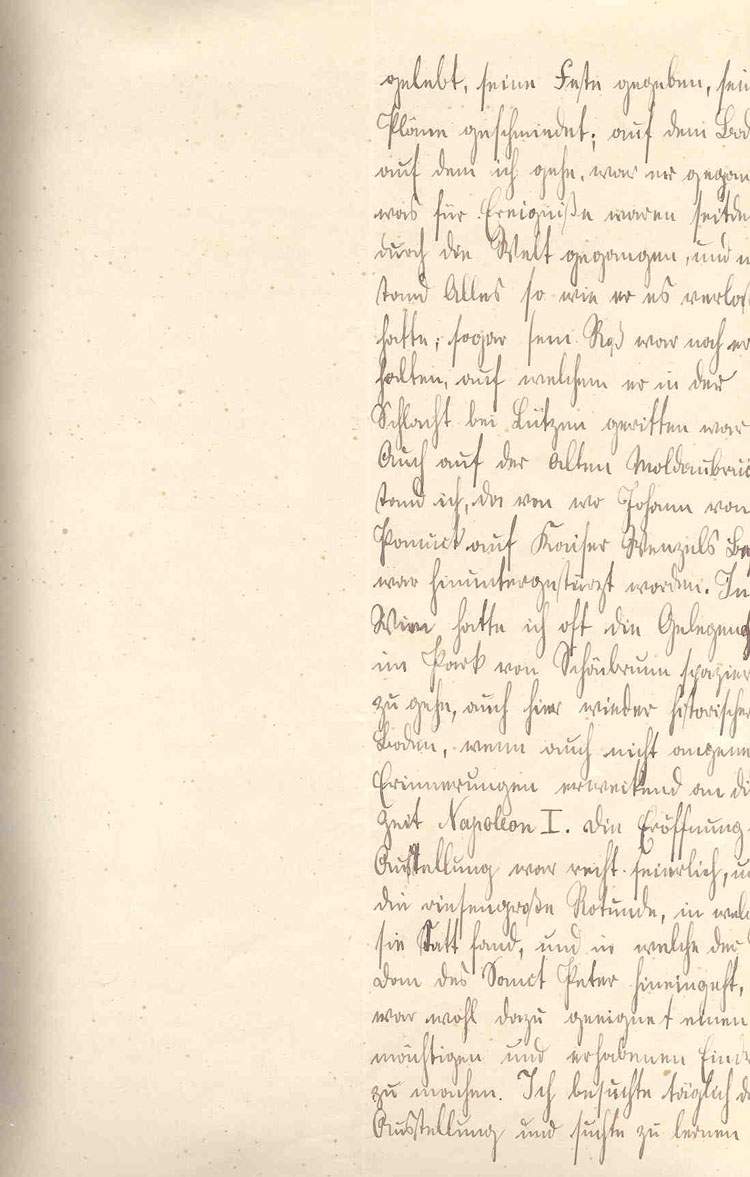 gelebt, seine Feste gegeben, sei
Pläne geschmiedet; auf dem Bod
auf dem ich gehe, war er gegan
was für Ereigniße waren seitde
durch die Welt gegangen, und n
stand Alles so wie er es verlaß
hatte; sogar sein Roß war noch er
halten, auf welchem er in der
Schlacht bei Lützen geritten war
Auch auf der alten Moldaubrüc
stand ich, da von wo Johann von
Pomuck auf Kaiser Wenzels Be
war hinuntergestürzt worden. In
Wien hatte ich oft die Gelegenh
im Park von Schönbrunn spazier
zu gehn, auch hier wieder historischer
Boden, wenn auch nicht angene
Erinnerungen erweckend an di
Zeit Napoleon I. Die Eröffnung
Ausstellung war recht feierlich, u
die riesengroße Rotunde, in welc
sie Statt fand, und in welche der
Dom des Sanct Peter hineingeht,
war wohl dazu geeignet einen
mächtigen und erhabenen Eind
zu machen. Ich besuchte täglich d
Ausstellung und suchte zu lernen